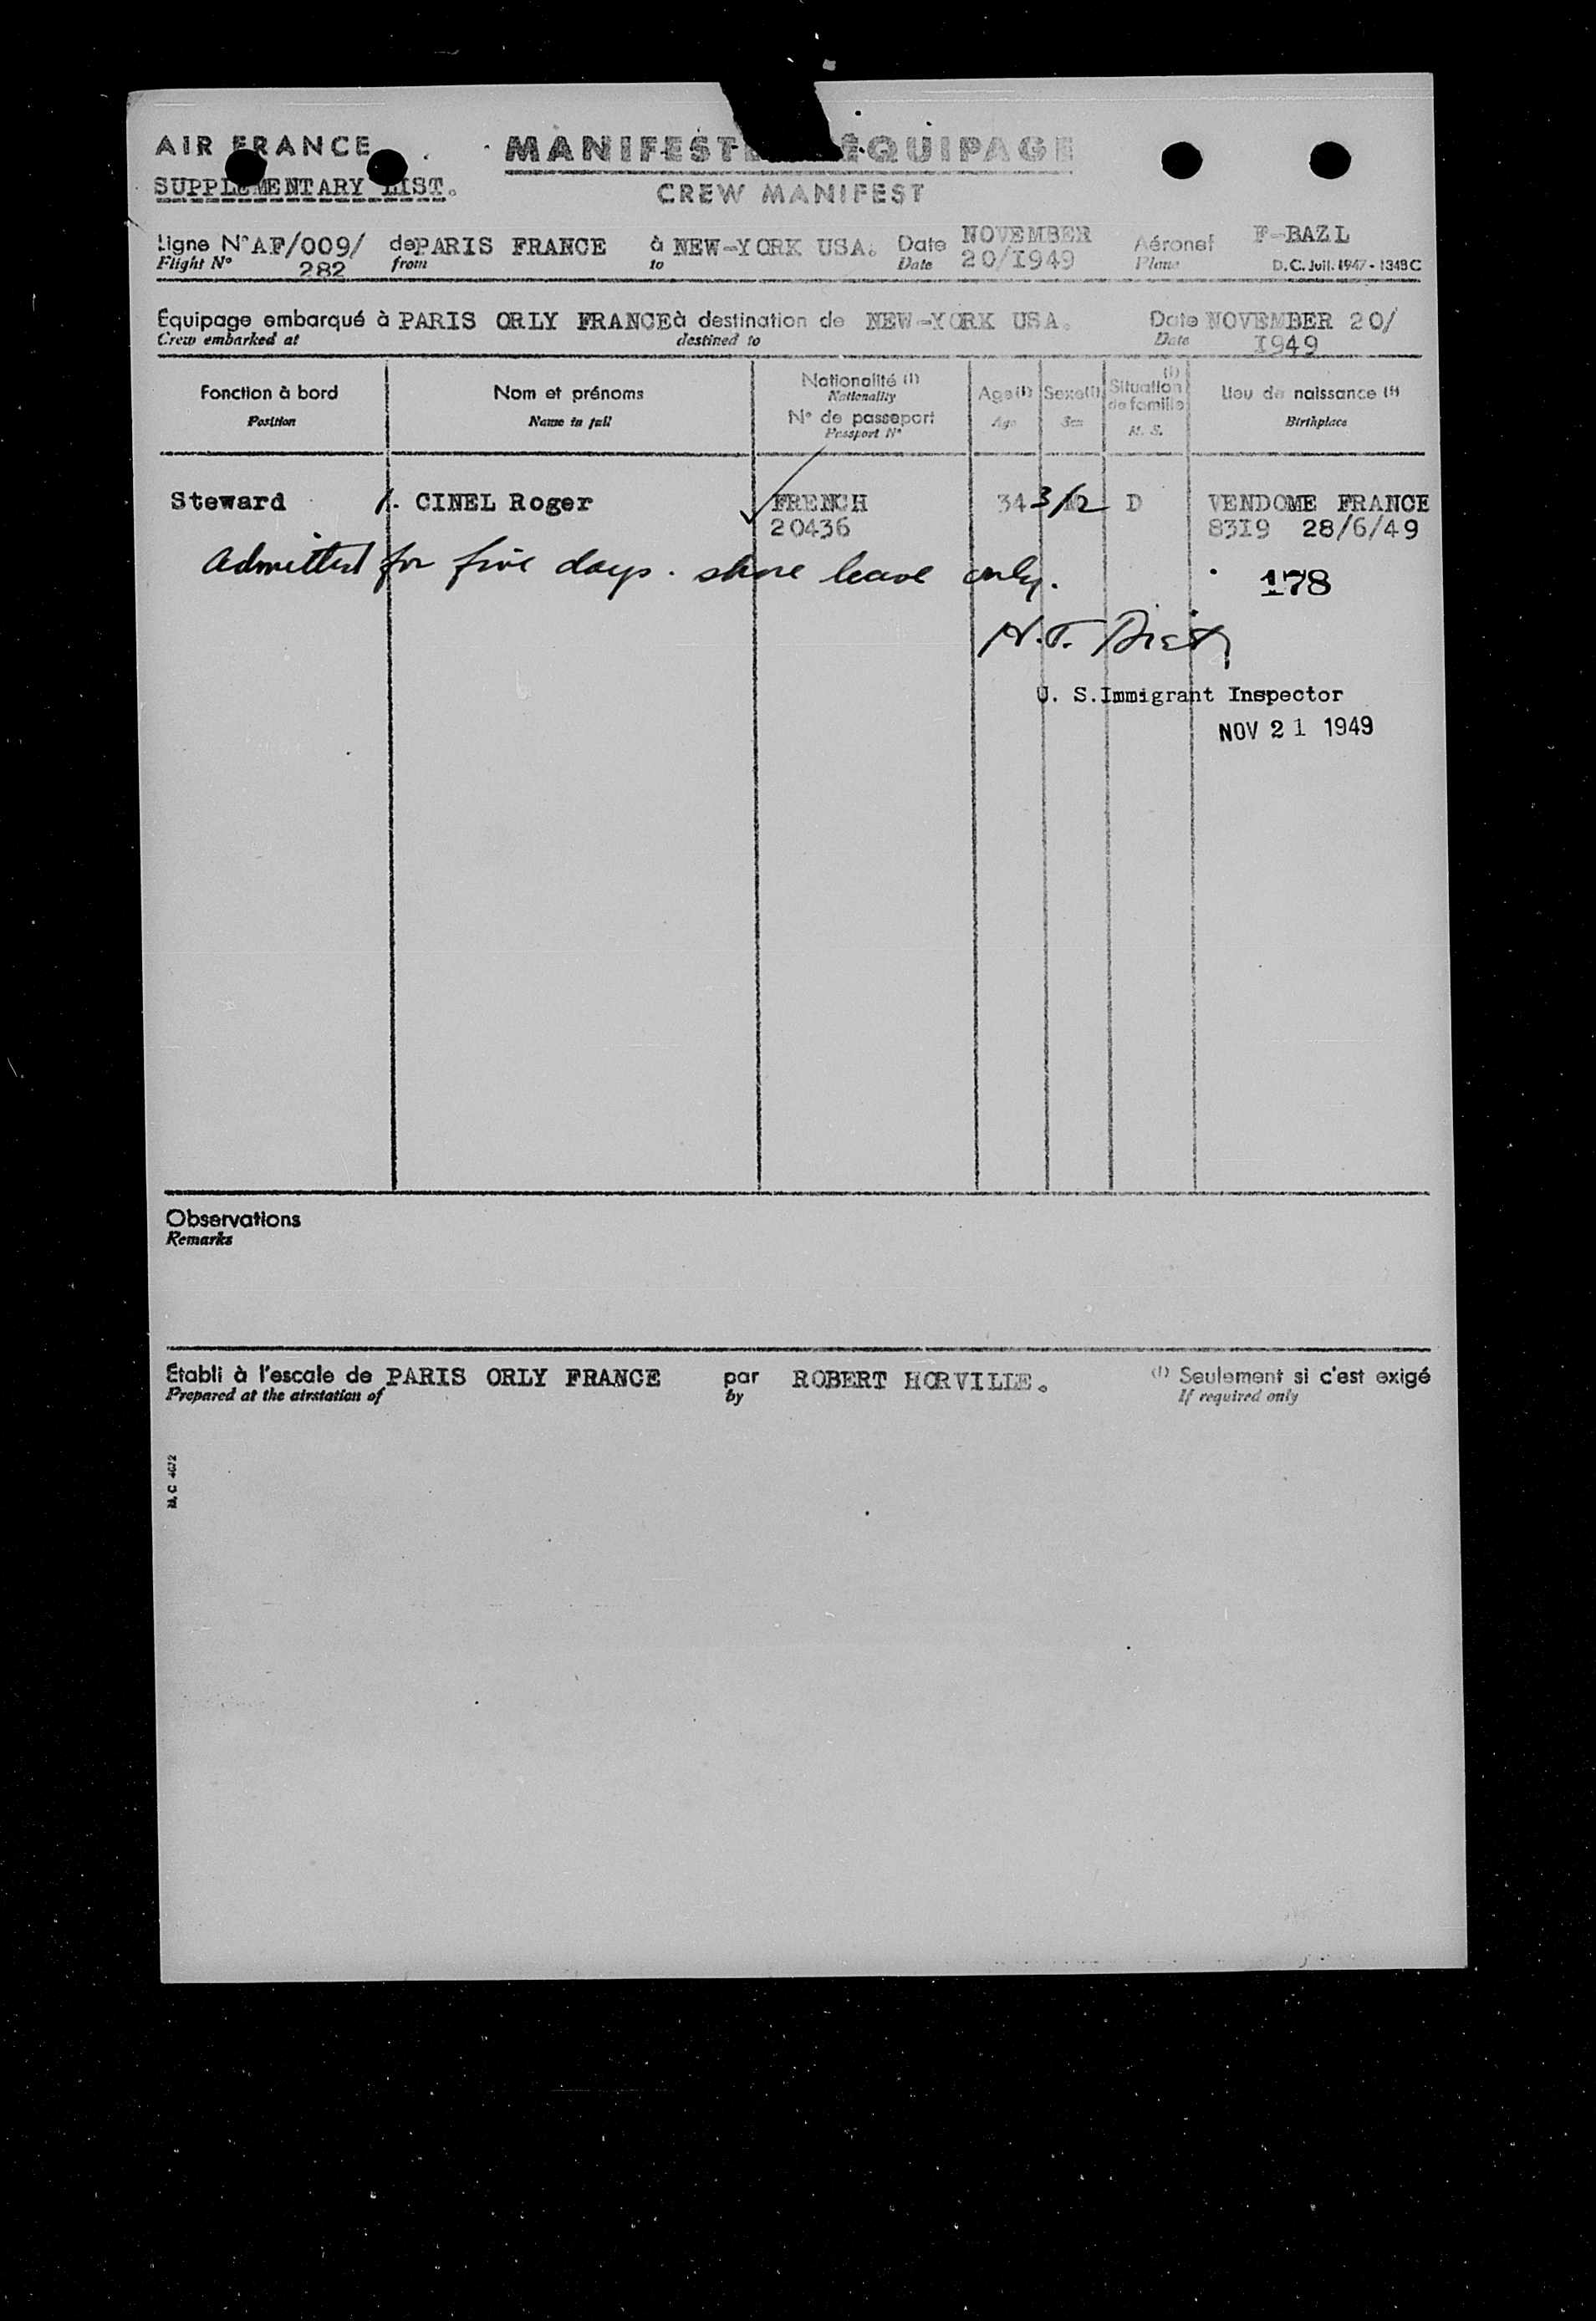 AIR FRANCE
MANIFESTE D'ÉQUIPAGE
SUPPLEMENTARY LIST.
CREW MANIFEST
Ligne N° AF/009/ de PARIS FRANCE à NEW-YORK USA. Date NOVEMBER Aéronef F-BAZL
Flight N° 282 from to Date 20/I949 Plane D.C. Juil. 1947 - 1348 C
Équipage embarqué à PARIS ORLY FRANCE à destination de NEW-YORK USA. Date NOVEMBER 20/
Crew embarked at destined to Date I949
Fonction à bord Nom et prénoms Nationalité (1) Age (1) Sexe (1) Situation de famille (1) Lieu de naissance (1)
Position Name in full Nationality Age Sex M. S. Birthplace
N° de passeport
Passport N°
Steward 1. CINEL Roger FRENCH 34 3/12 D VENDOME FRANCE
20436 83I9 28/6/49
Admitted for five days. shore leave only. 178
U. S. Immigrant Inspector
NOV 21 1949
Observations
Remarks
Établi à l'escale de PARIS ORLY FRANCE par ROBERT HORVILLE. (1) Seulement si c'est exigé
Prepared at the airstation of by If required only